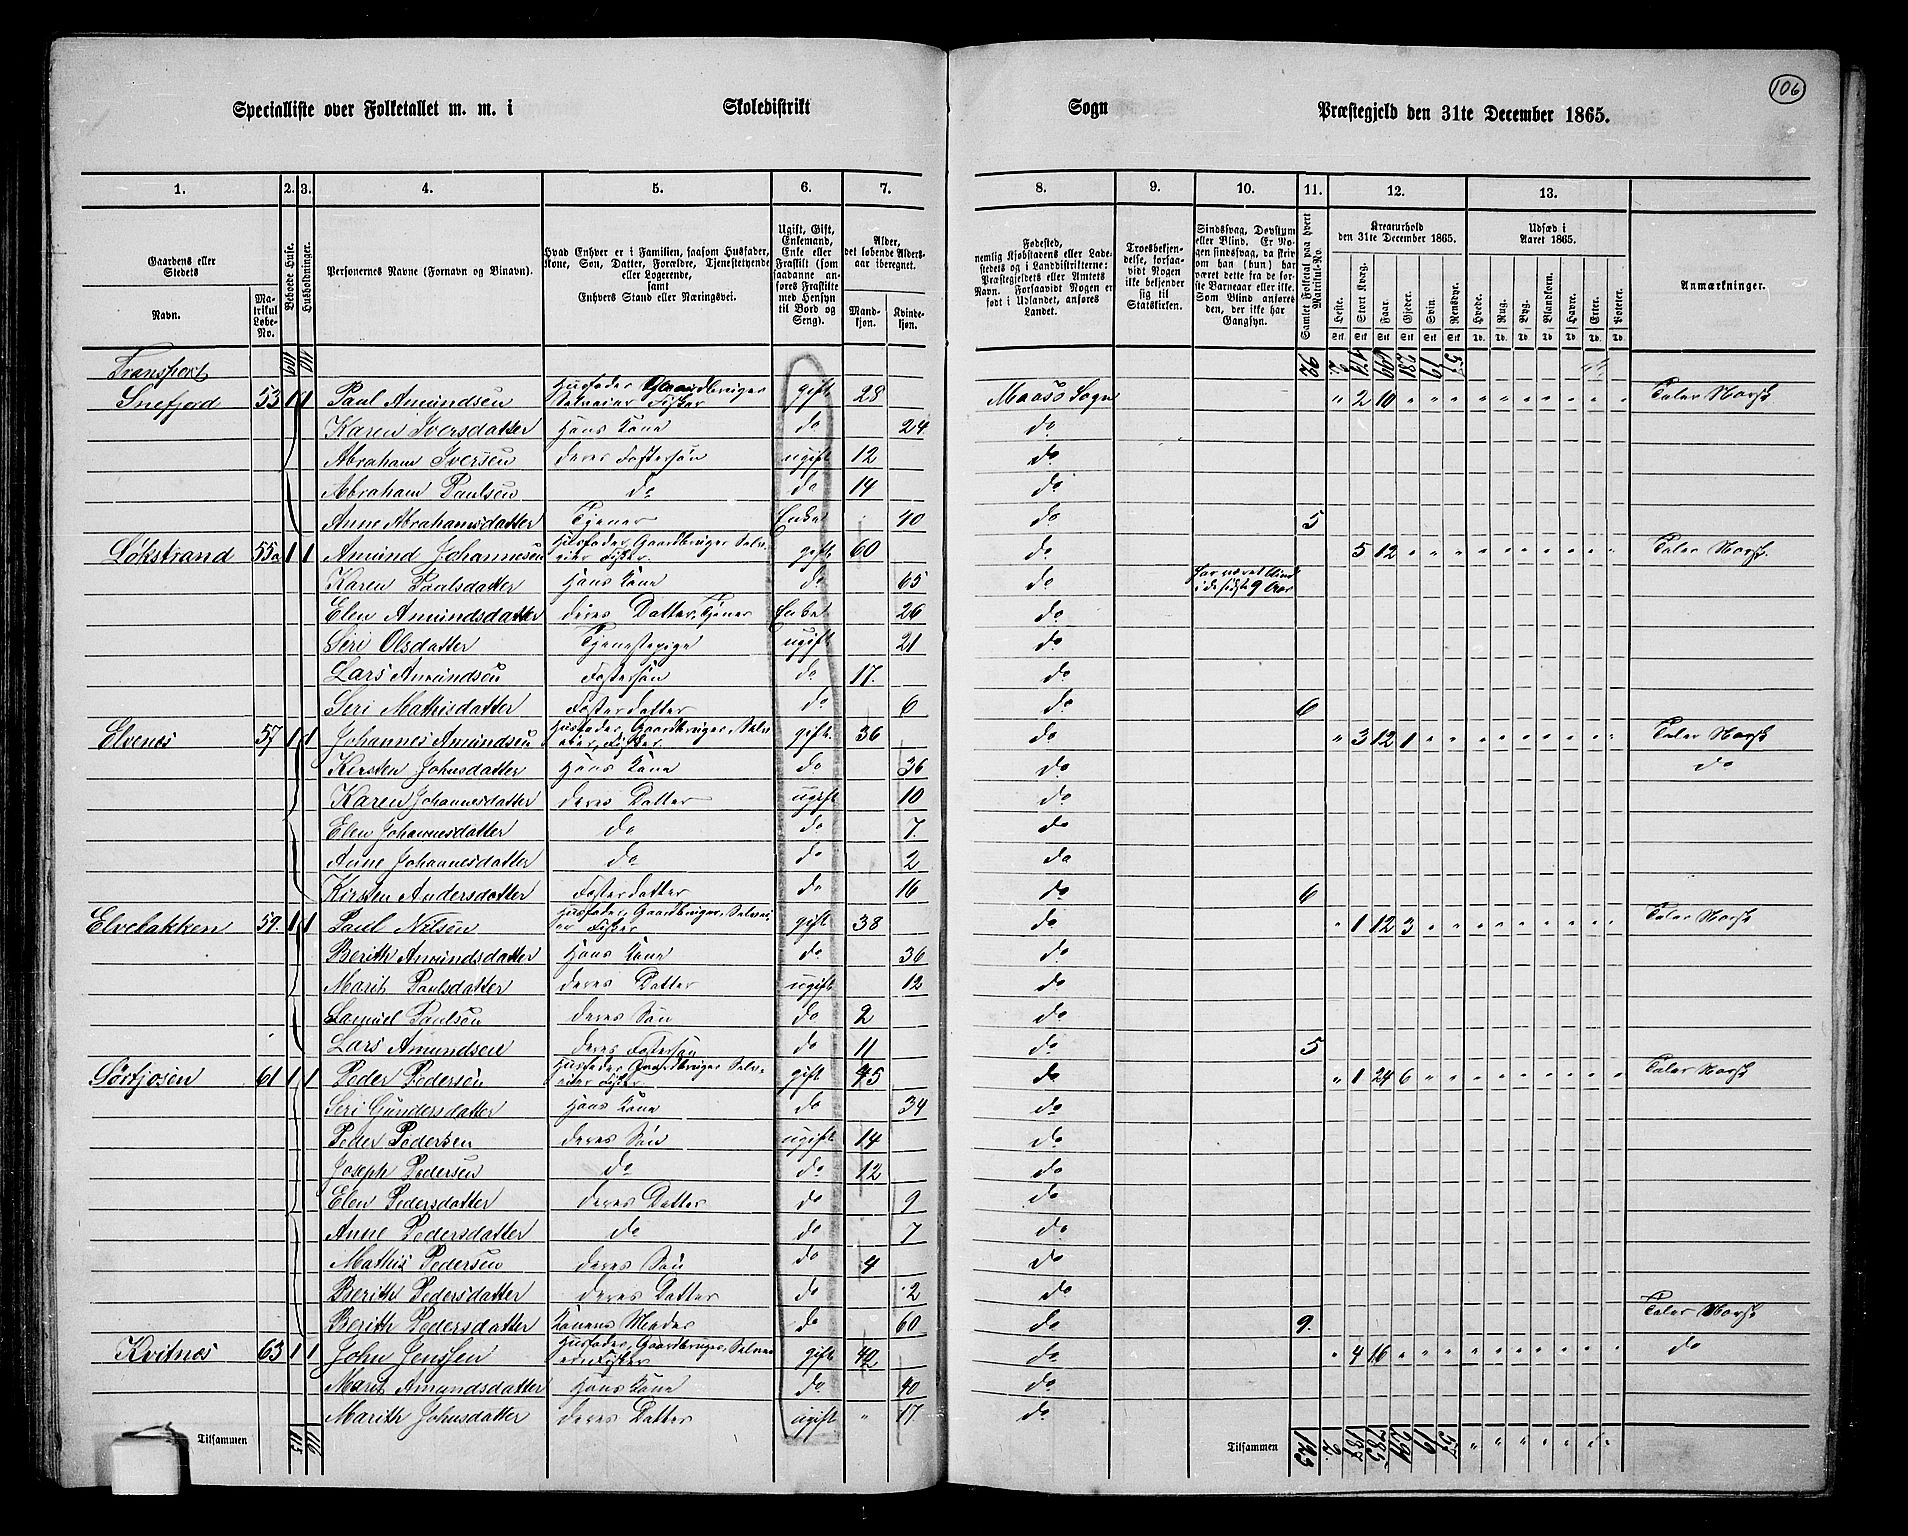 106
Specialliste over Folketallet m. m. i Skoledistrikt Sogn Præstegjeld den 31te December 1865.
1. 2. 3. 4. 5. 6. 7. 8. 9. 10. 11. 12. 13.
Gaardens eller Stedets Navn.
Matrikul Løbe-No.
Beboede Huse.
Husholdninger.
Personernes Navne (Fornavn og Binavn).
Hvad Enhver er i Familien, saasom Husfader, Kone, Søn, Datter, Forældre, Tjenestetyende eller Logerende, samt Enhvers Stand eller Næringsvei.
Ugift, Gift, Enkemand, Enke eller Fraskilt (som saadanne anføres Fraskilte med Hensyn til Bord og Seng).
Alder, det løbende Aldersaar iberegnet.
Mandkjøn. Kvindekjøn.
Fødested, nemlig Kjøbstadens eller Ladestedets og i Landdistrikterne: Præstegjeldets eller Amtets Navn. Forsaavidt Nogen er født i Udlandet, anføres Landet.
Troesbekjendelse, forsaavidt Nogen ikke bekjender sig til Statskirken.
Sindssvag, Døvstum eller Blind. Er Nogen sindssvag, da skrives om han (hun) har været dette fra de første Barneaar eller ikke. Som Blind anføres den, der ikke har Gangsyn.
Samlet Folketal paa hvert Matrikul-No.
Kreaturhold den 31te December 1865.
Heste. Stort Kvæg. Faar. Gjeder. Svin. Rensdyr.
Udsæd i Aaret 1865.
Hvede. Rug. Byg. Blandkorn. Havre. Erter. Poteter.
Anmærkninger.
Transport 109 110 92 2 174 28
Snefjord 53 1 1 Paul Amundsen Husfader Gaardbruger Selveier Fisker gift 28 Maasø Sogn " 2 10 " " " Taler Norsk
Karen Iversdatter Hans Kone do 24 do
Abraham Iversen deres Fostersøn ugift 12 do
Abraham Paulsen do do 14 do
Anne Abrahamsdatter Tjener Enke 40 do 5
Løkstrand 55a 1 1 Amund Johannesen Husfader, Gaardbruger Selveier Fisker gift 60 do 5 12 " " " Taler Norsk.
Karen Paulsdatter Hans Kone do 65 do har været blind i de sidste 9 Aar
Elen Amundsdatter deres Datter, Tjener Enke 26 do
Seri Olsdatter Tjenestepige ugift 21 do
Lars Amundsen Fostersøn do 17. do
Seri Mathisdatter Fosterdatter do 6 do 6
Elvenes 57 1 1 Johannes Amundsen Husfader, Gaardbruger, Selveier, Fisker gift 36 do " 3 12 1 " " Taler Norsk
Kirsten Johnsdatter Hans Kone do 36 do do
Karen Johannesdatter deres Datter ugift 10 do
Elen Johannesdatter do do 7. do
Anne Johannesdatter do do 2 do
Kirsten Andersdatter Fosterdatter do 16 do 6
Elvebakken 59. 1 1 Paul Nilsen Husfader, Gaardbruger, Selveier Fisker gift 38 do " 1 12 3 " " Taler Norsk
Berith Amundsdatter Hans Kone do 36 do
Marit Paulsdatter deres Datter ugift 12 do
Samuel Paulsen deres Søn do 2 do
Lars Amundsen deres Fostersøn do 11 do 5
Sørfjosen 61 1 1 Peder Pedersen Husfader Gaardbruger Selveier Fisker gift 45 do " 1 24 6 " " Taler Norsk
Seri Gundersdatter Hans Kone do 34 do
Peder Pedersen deres Søn ugift 14 do
Joseph Pedersen do do 12 do
Elen Pedersdatter deres Datter do 9 do
Anne Pedersdatter do do 7 do
Mathis Pedersen deres Søn do 4 do
Berith Pedersdatter deres Datter do 2 do
Berith Pedersdatter Konens Moder do 60 do 9. Taler Norsk
Kvitnes 63 1 1 John Jenssen Husfader, Gaardbruger, Selveier Fisker gift 42 do " 4 16 " " " do
Marit Amundsdatter Hans Kone do 40 do
Marith Johnsdatter deres Datter ugift " 17 do
Tilsammen 115 116 Tilsammen 123 2